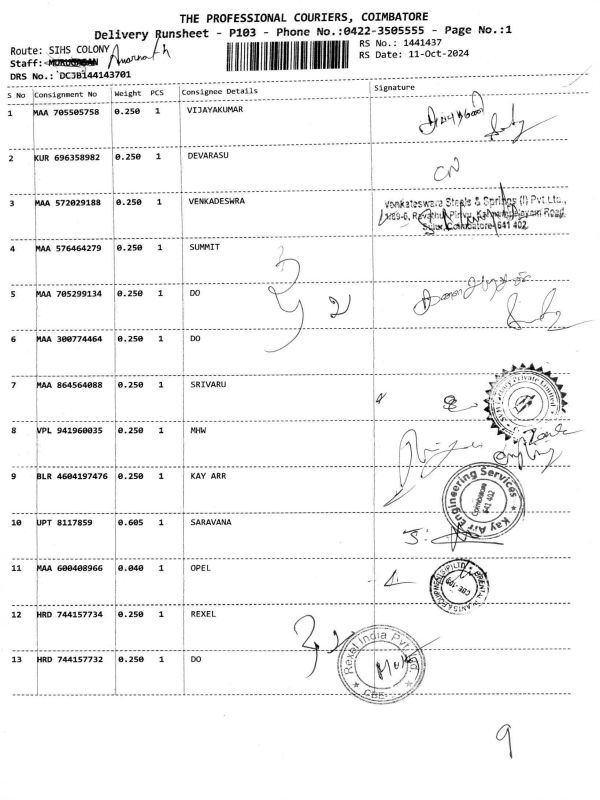 THE PROFESSIONAL COURIERS, COIMBATORE
Delivery Runsheet - P103 - Phone No.:0422-3505555 - Page No.:1
Route: SIHS COLONY
RS No.: 1441437
Staff: MURUGESAN Amarnath
RS Date: 11-Oct-2024
DRS No.: DCJB144143701
S No Consignment No Weight PCS Consignee Details Signature
1 MAA 705505758 0.250 1 VIJAYAKUMAR
2 KUR 696358982 0.250 1 DEVARASU CN
3 MAA 572029188 0.250 1 VENKADESWRA
Venkateswara Steels & Springs (I) Pvt.Ltd.,
Sulur, Coimbatore-641 402
4 MAA 576464279 0.250 1 SUMMIT
5 MAA 705299134 0.250 1 DO
6 MAA 300774464 0.250 1 DO
7 MAA 864564088 0.250 1 SRIVARU
8 VPL 941960035 0.250 1 MHW
9 BLR 4604197476 0.250 1 KAY ARR
Kay Arr Engineering Services
Coimbatore
641 402
10 UPT 8117859 0.605 1 SARAVANA
11 MAA 600408966 0.040 1 OPEL
12 HRD 744157734 0.250 1 REXEL
13 HRD 744157732 0.250 1 DO
Rexel India Pvt. Ltd.
CBE
9